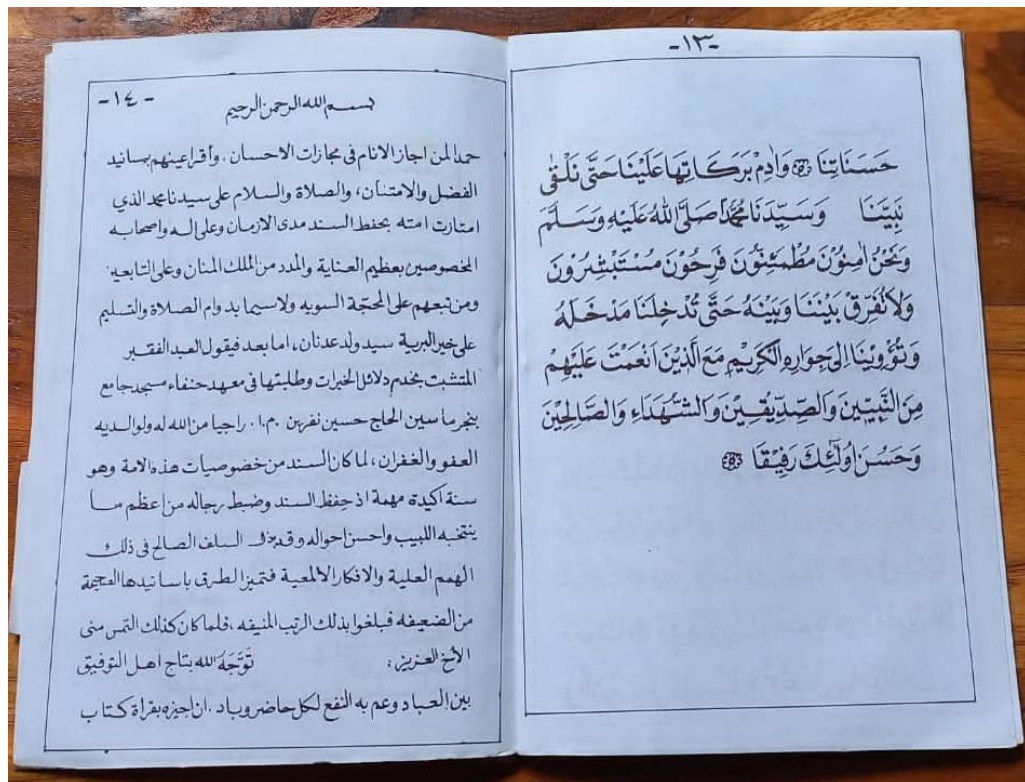 -١٣-
حَسَنَاتِنَا ۞ وَاَدِمْ بَرَكَاتِهَا عَلَيْنَا حَتَّى نَلْقٰى
نَبِيَّنَا وَسَيِّدَنَا مُحَمَّدًا صَلَّى اللّٰهُ عَلَيْهِ وَسَلَّمَ
وَنَحْنُ اٰمِنُوْنَ مُطْمَئِنُّوْنَ فَرِحُوْنَ مُسْتَبْشِرُوْنَ
وَلَا تُفَرِّقْ بَيْنَنَا وَبَيْنَهُ حَتَّى تُدْخِلَنَا مَدْخَلَهُ
وَتُؤْوِيْنَا اِلَى جِوَارِهِ الْكَرِيْمِ مَعَ الَّذِيْنَ اَنْعَمْتَ عَلَيْهِمْ
مِنَ النَّبِيِّيْنَ وَالصِّدِّيْقِيْنَ وَالشُّهَدَاءِ وَالصَّالِحِيْنَ
وَحَسُنَ اُولٰئِكَ رَفِيْقًا ۞
-١٤-
بسم الله الرحمن الرحيم
حمدا لمن اجاز الانام فى مجازات الاحسان . وأقر اعينهم بسانيد
الفضل والامتنان، والصلاة والسلام على سيدنا محمد الذي
امتازت امته بحفط السند مدى الازمان وعلى اله واصحابه
المخصوصين بعظيم العناية والمدد من الملك المنان وعلى التابعيه
ومن تبعهم على المحجة السويه ولاسيما بدوام الصلاة والتسليم
على خير البرية سيد ولد عدنان، اما بعد فيقول العبد الفقير
المتشبث بخدم دلائل الخيرات وطلبتها فى معهد حنفاء مسجد جامع
بنجرماسين الحاج حسين نفرين .م.ا. راجيا من الله له ولوالديه
العفو والغفران، لما كان السند من خصوصيات هذه الامة وهو
سنة اكيدة مهمة اذ حفظ السند وضبط رجاله من اعظم ما
ينتخبه اللبيب واحسن احواله وقد السلف الصالح فى ذلك
الهمم العلية والافكار الالمعية فتميز الطرق باسانيدها
من الضعيفه فبلغوا بذلك الرتب المنيفه ، فلما كان كذلك التمس منى
الأخ العزيز : تَوَّجَهُ الله بتاج اهل التوفيق
بين العباد وعم به النفع لكل حاضر وباد . ان اجيزه بقراة كتاب